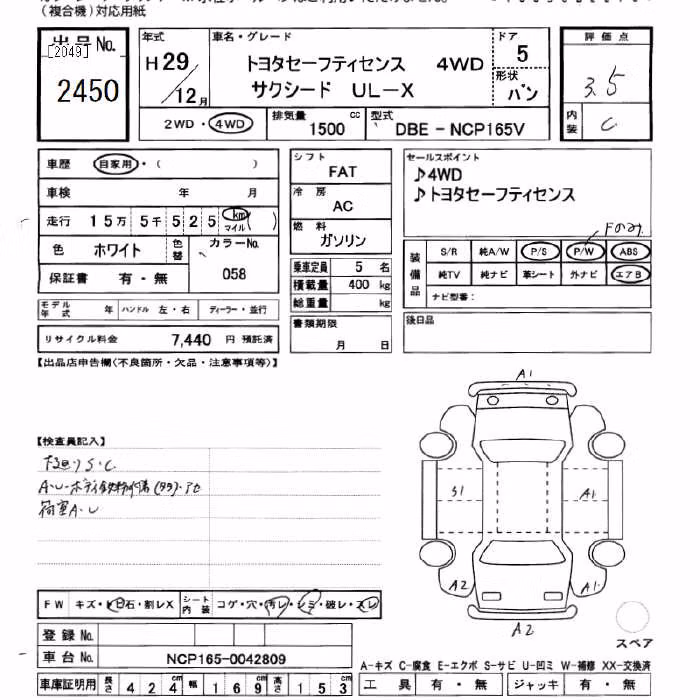 (複合機)対応用紙
出品No.
[2049]
2450
年式
H29/12月
車名・グレード
トヨタセーフティセンス 4WD
サクシード UL-X
ドア
5
形状
バン
評価点
3.5
内装
C
2WD・4WD
排気量
1500 cc
型式
DBE-NCP165V
車歴 自家用・( )
車検 年 月
走行 15万5千525 km マイル ( )
色 ホワイト 色替 カラーNo.
058
保証書 有・無
シフト
FAT
冷房
AC
燃料
ガソリン
乗車定員 5 名
積載量 400 kg
総重量 kg
書類期限
月 日
セールスポイント
♪4WD
♪トヨタセーフティセンス
Fのみ
装備品
S/R 純A/W P/S P/W ABS
純TV 純ナビ 革シート 外ナビ エアB
ナビ型番:
後日品
モデル年式 年 ハンドル 左・右 ディーラー・並行
リサイクル料金 7,440 円 預託済
【出品店申告欄(不良箇所・欠品・注意事項等)】
【検査員記入】
下回りS・C
荷室A・U
FW キズ・ヒ石・割レX シート内装 コゲ・穴・汚レ・シミ・破レ・スレ
登録No.
車台No. NCP165-0042809
車庫証明用 長さ 424 cm 幅 169 cm 高さ 153 cm
A1
S1
A1
A2
A1
A2
スペア
A-キズ C-腐食 E-エクボ S-サビ U-凹ミ W-補修 XX-交換済
工具 有・無 ジャッキ 有・無